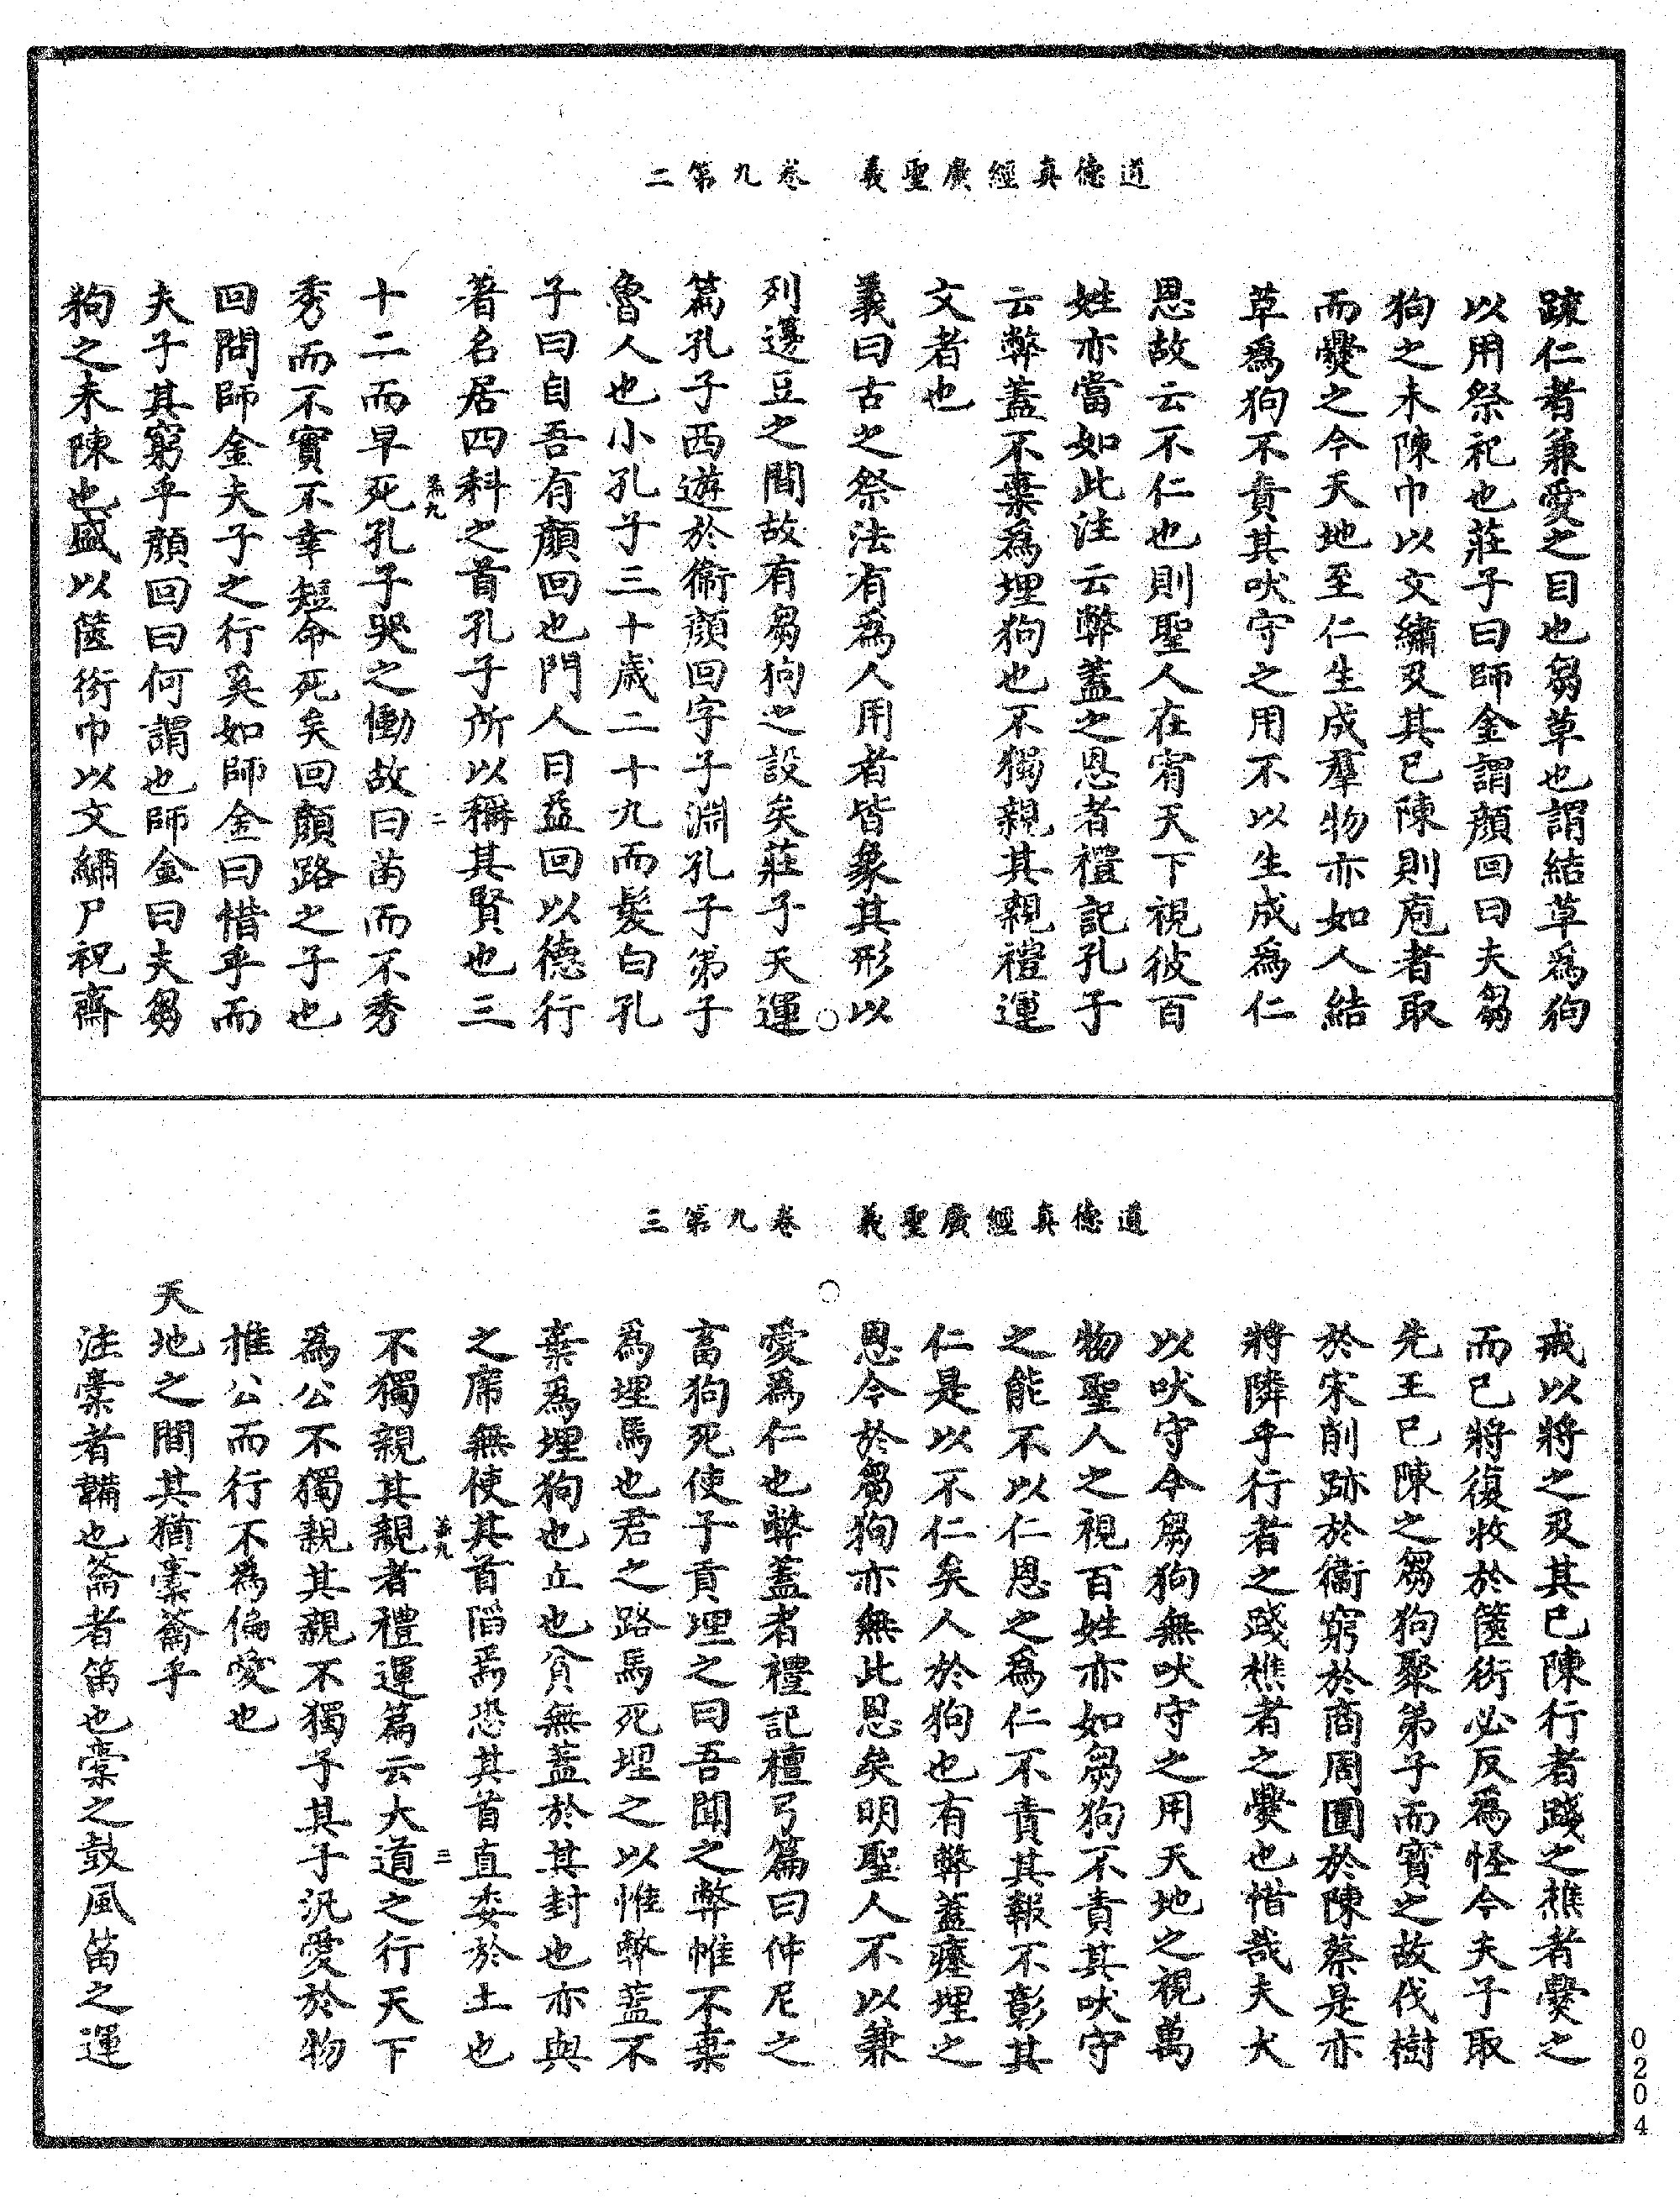 道德真經廣聖義　卷九第二
踈仁者兼愛之目也芻草也謂結草爲狗
以用祭祀也莊子曰師金謂顔回曰夫芻
狗之未陳巾以文繡及其已陳則庖者取
而㸑之今天地至仁生成羣物亦如人結
草爲狗不責其吠守之用不以生成爲仁
恩故云不仁也則聖人在宥天下視彼百
姓亦當如此注云弊蓋之恩者禮記孔子
云弊蓋不棄爲埋狗也不獨親其親禮運
文者也
義曰古之祭法有爲人用者皆象其形以
列籩豆之間故有芻狗之設矣莊子天運
篇孔子西遊於衞顔回字子淵孔子弟子
魯人也小孔子三十歲二十九而髮白孔
子曰自吾有顔回也門人日益回以德行
著名居四科之首孔子所以稱其賢也三
義九　二
十二而早死孔子哭之慟故曰苗而不秀
秀而不實不幸短命死矣回顔路之子也
回問師金夫子之行奚如師金曰惜乎而
夫子其窮乎顔回曰何謂也師金曰夫芻
狗之未陳也盛以篋衍巾以文繡尸祝齋
道德真經廣聖義　卷九第三
戒以將之及其已陳行者踐之樵者㸑之
而已將復收於篋衍必反爲怪今夫子取
先王已陳之芻狗聚弟子而寶之故伐樹
於宋削跡於衞窮於商周圍於陳蔡是亦
將隣乎行者之踐樵者之㸑也惜哉夫犬
以吠守今芻狗無吠守之用天地之視萬
物聖人之視百姓亦如芻狗不責其吠守
之能不以仁恩之爲仁不責其報不彰其
仁是以不仁矣人於狗也有弊蓋瘞埋之
恩今於芻狗亦無此恩矣明聖人不以兼
愛爲仁也弊蓋者禮記檀弓篇曰仲尼之
畜狗死使子貢埋之曰吾聞之弊帷不棄
爲埋馬也君之路馬死埋之以帷弊蓋不
棄爲埋狗也丘也貧無蓋於其封也亦與
之席無使其首陷焉恐其首直委於土也
義九　三
不獨親其親者禮運篇云大道之行天下
爲公不獨親其親不獨子其子汎愛於物
惟公而行不爲偏愛也
天地之間其猶橐籥乎
注橐者鞴也籥者笛也橐之鼓風笛之運
0204